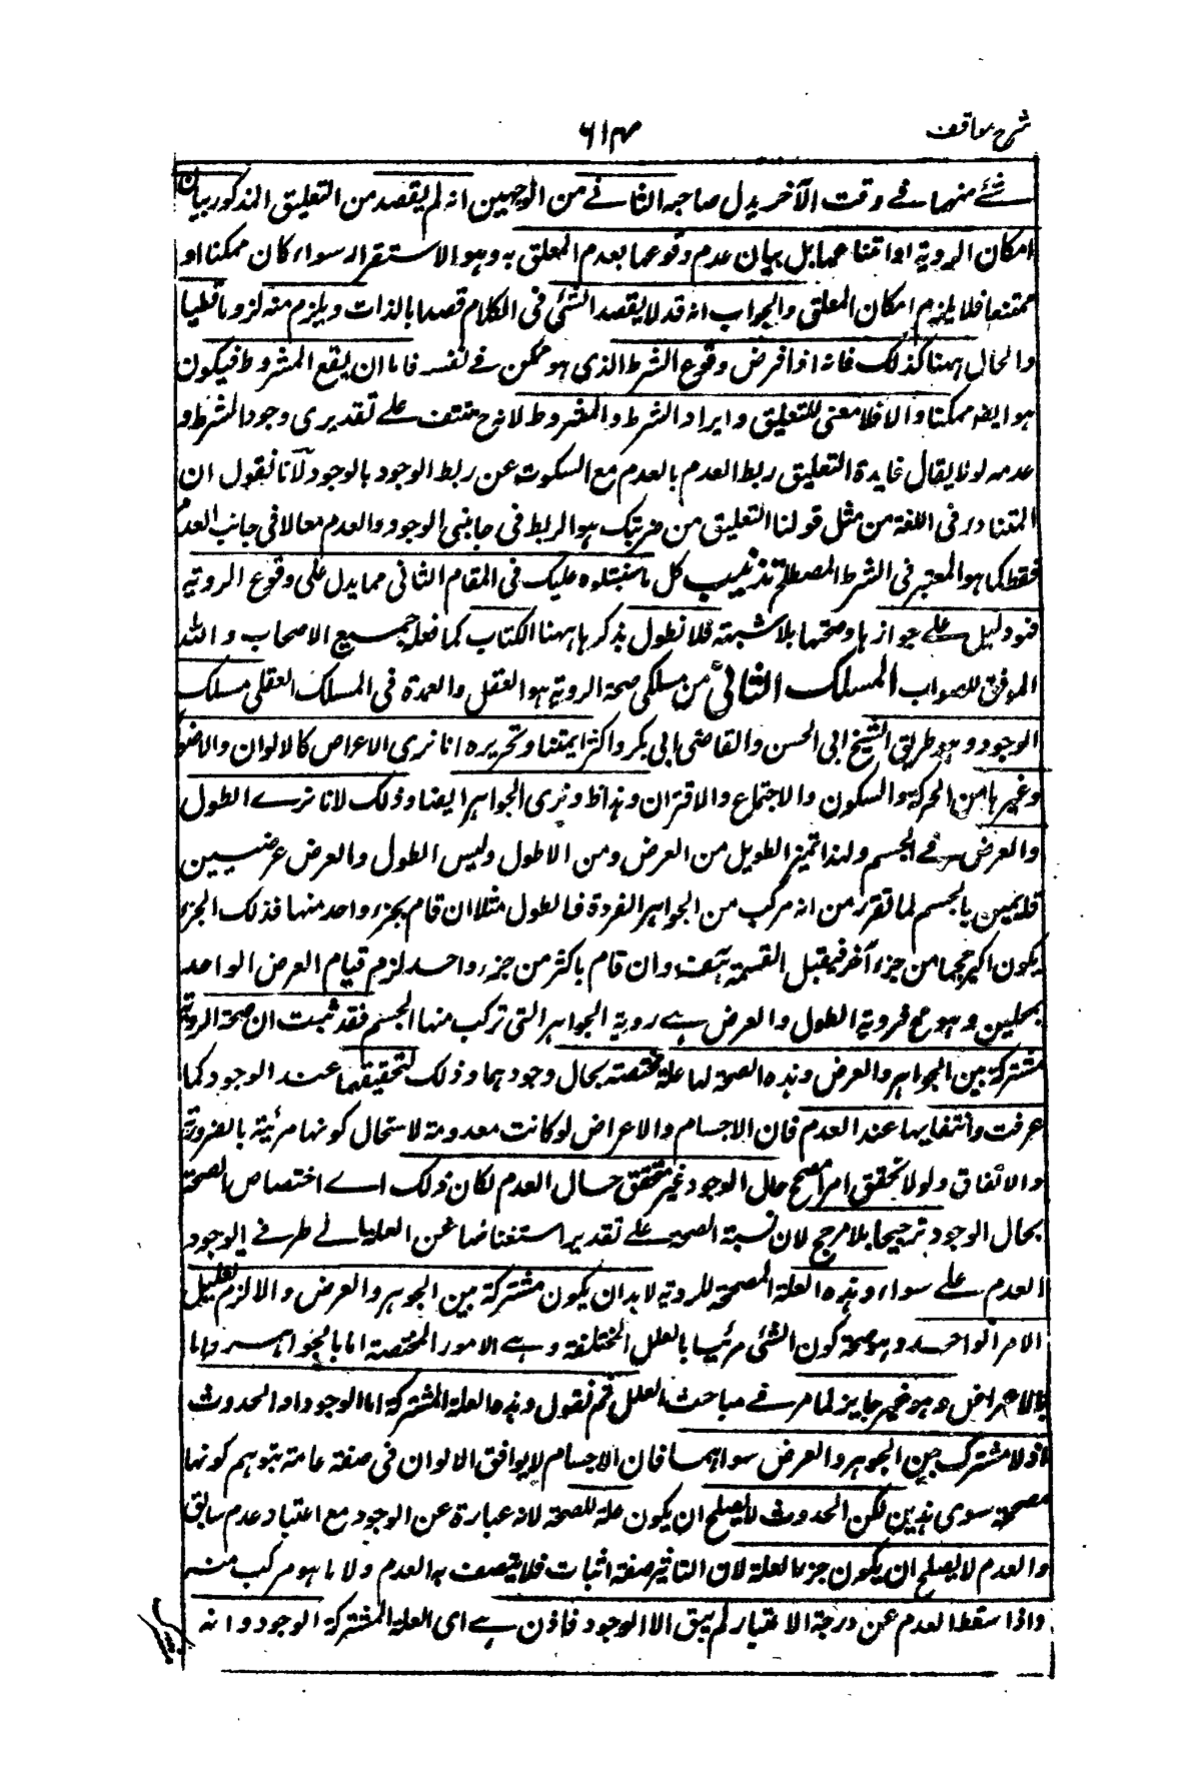 شرح مواقف
٦١٣
شئ منهما فے وقت الآخر يدل صاحبه الثانے من الوجهين انه لم يقصد من التعليق المذكور بيان
امكان الروية او امتناعها بل بيان عدم وقوعها بعدم المعلق به وهو الاستقرار سواء كان ممكنا او
ممتنعا فلا يلزم امكان المعلق والجواب انه قد لا يقصد الشئ فى الكلام قصدا بالذات ويلزم منه لزوما قطعيا
والحال ههنا كذلك فانه اذا فرض وقوع الشرط الذى هو ممكن فے نفسه فاما ان يقع المشروط فيكون
هو ايضا ممكنا والا فلا معنى للتعليق وايراد الشرط والمشروط لانه ح منتف علے تقديرى وجود الشرط و
عدمه لو لا يقال فايدة التعليق ربط العدم بالعدم مع السكوت عن ربط الوجود بالوجود لآنا نقول ان
المتبادر فى اللغة من مثل قولنا التعليق من ضربتك هو الربط فى جانبى الوجود والعدم معا لا فى جانب العدم
فقط كما هو المعتبر فى الشرط المصطلح تذنيب كل ما سنتلوه عليك فى المقام الثانى مما يدل على وقوع الروية
فهو دليل علے جوازها وصحتها بلا شبهة فلا نطول بذكرها ههنا الكتاب كما فعل جميع الاصحاب والله
الموفق للصواب المسلك الثانى من مسلكى صحة الروية هو العقل والعمدة فى المسلك العقلى مسلك
الوجود وهو طريق الشيخ ابى الحسن والقاضى ابى بكر واكثر ايمتنا وتحريره انا نرى الاعراض كالالوان والاضو
وغيرها من الحركة والسكون والاجتماع والافتراق وهذا ظ ونرى الجواهر ايضا وذلك لانا نرے الطول
والعرض فے الجسم ولهذا تميز الطويل من العرض ومن الاطول وليس الطول والعرض عرضيين
قايمين بالجسم لما تقرر من انه مركب من الجواهر الفردة فالطول مثلا ان قام بجزء واحد منها فذلك الجزء
يكون اكبر حجما من جزء آخر فيقبل القسمة هف وان قام باكثر من جزء واحد لزم قيام العرض الواحد
بمحلين وهو مح فروية الطول والعرض هے روية الجواهر التى تركب منها الجسم فقد ثبت ان صحة الروية
مشتركة بين الجواهر والعرض وهذه الصحة لها علة مختصة بحال وجودهما وذلك لتحققها عند الوجود كما
عرفت وانتفايها عند العدم فان الاجسام والاعراض لو كانت معدومة لاستحال كونها مرئية بالضرورة
والاتفاق ولولا تحقق امر مصحح حال الوجود غير متحقق حال العدم لكان ذلك اے اختصاص الصحة
بحال الوجود ترجيحا بلا مرجح لان نسبة الصحة علے تقدير استغنائها عن العلة الے طرفے الوجود
العدم علے سواء وهذه العلة المصححة للروية لا بد ان يكون مشتركة بين الجوهر والعرض والا لزم تعليل
الامر الواحد وهو صحة كون الشئ مرئيا بالعلل المختلفة وهے الامور المختصة اما بالجواهر واما
بالاعراض وهو غير جايز لما مر فے مباحث العلل ثم نقول وهذه العلة المشتركة اما الوجود او الحدوث
اذ لا مشترك بين الجوهر والعرض سواهما فان الاجسام لا يوافق الالوان فى صفة عامة يتوهم كونها
مصححة سوى هذين لكن الحدوث لا يصلح ان يكون علة للصحة لانه عبارة عن الوجود مع اعتبار عدم سابق
والعدم لا يصلح ان يكون جزءا لعلة لان التاثير صفة اثبات فلا يتصف به العدم ولا ما هو مركب منه
واذا سقط العدم عن درجة الاعتبار لم يبق الا الوجود فاذن هے اى العلة المشتركة الوجود وانه